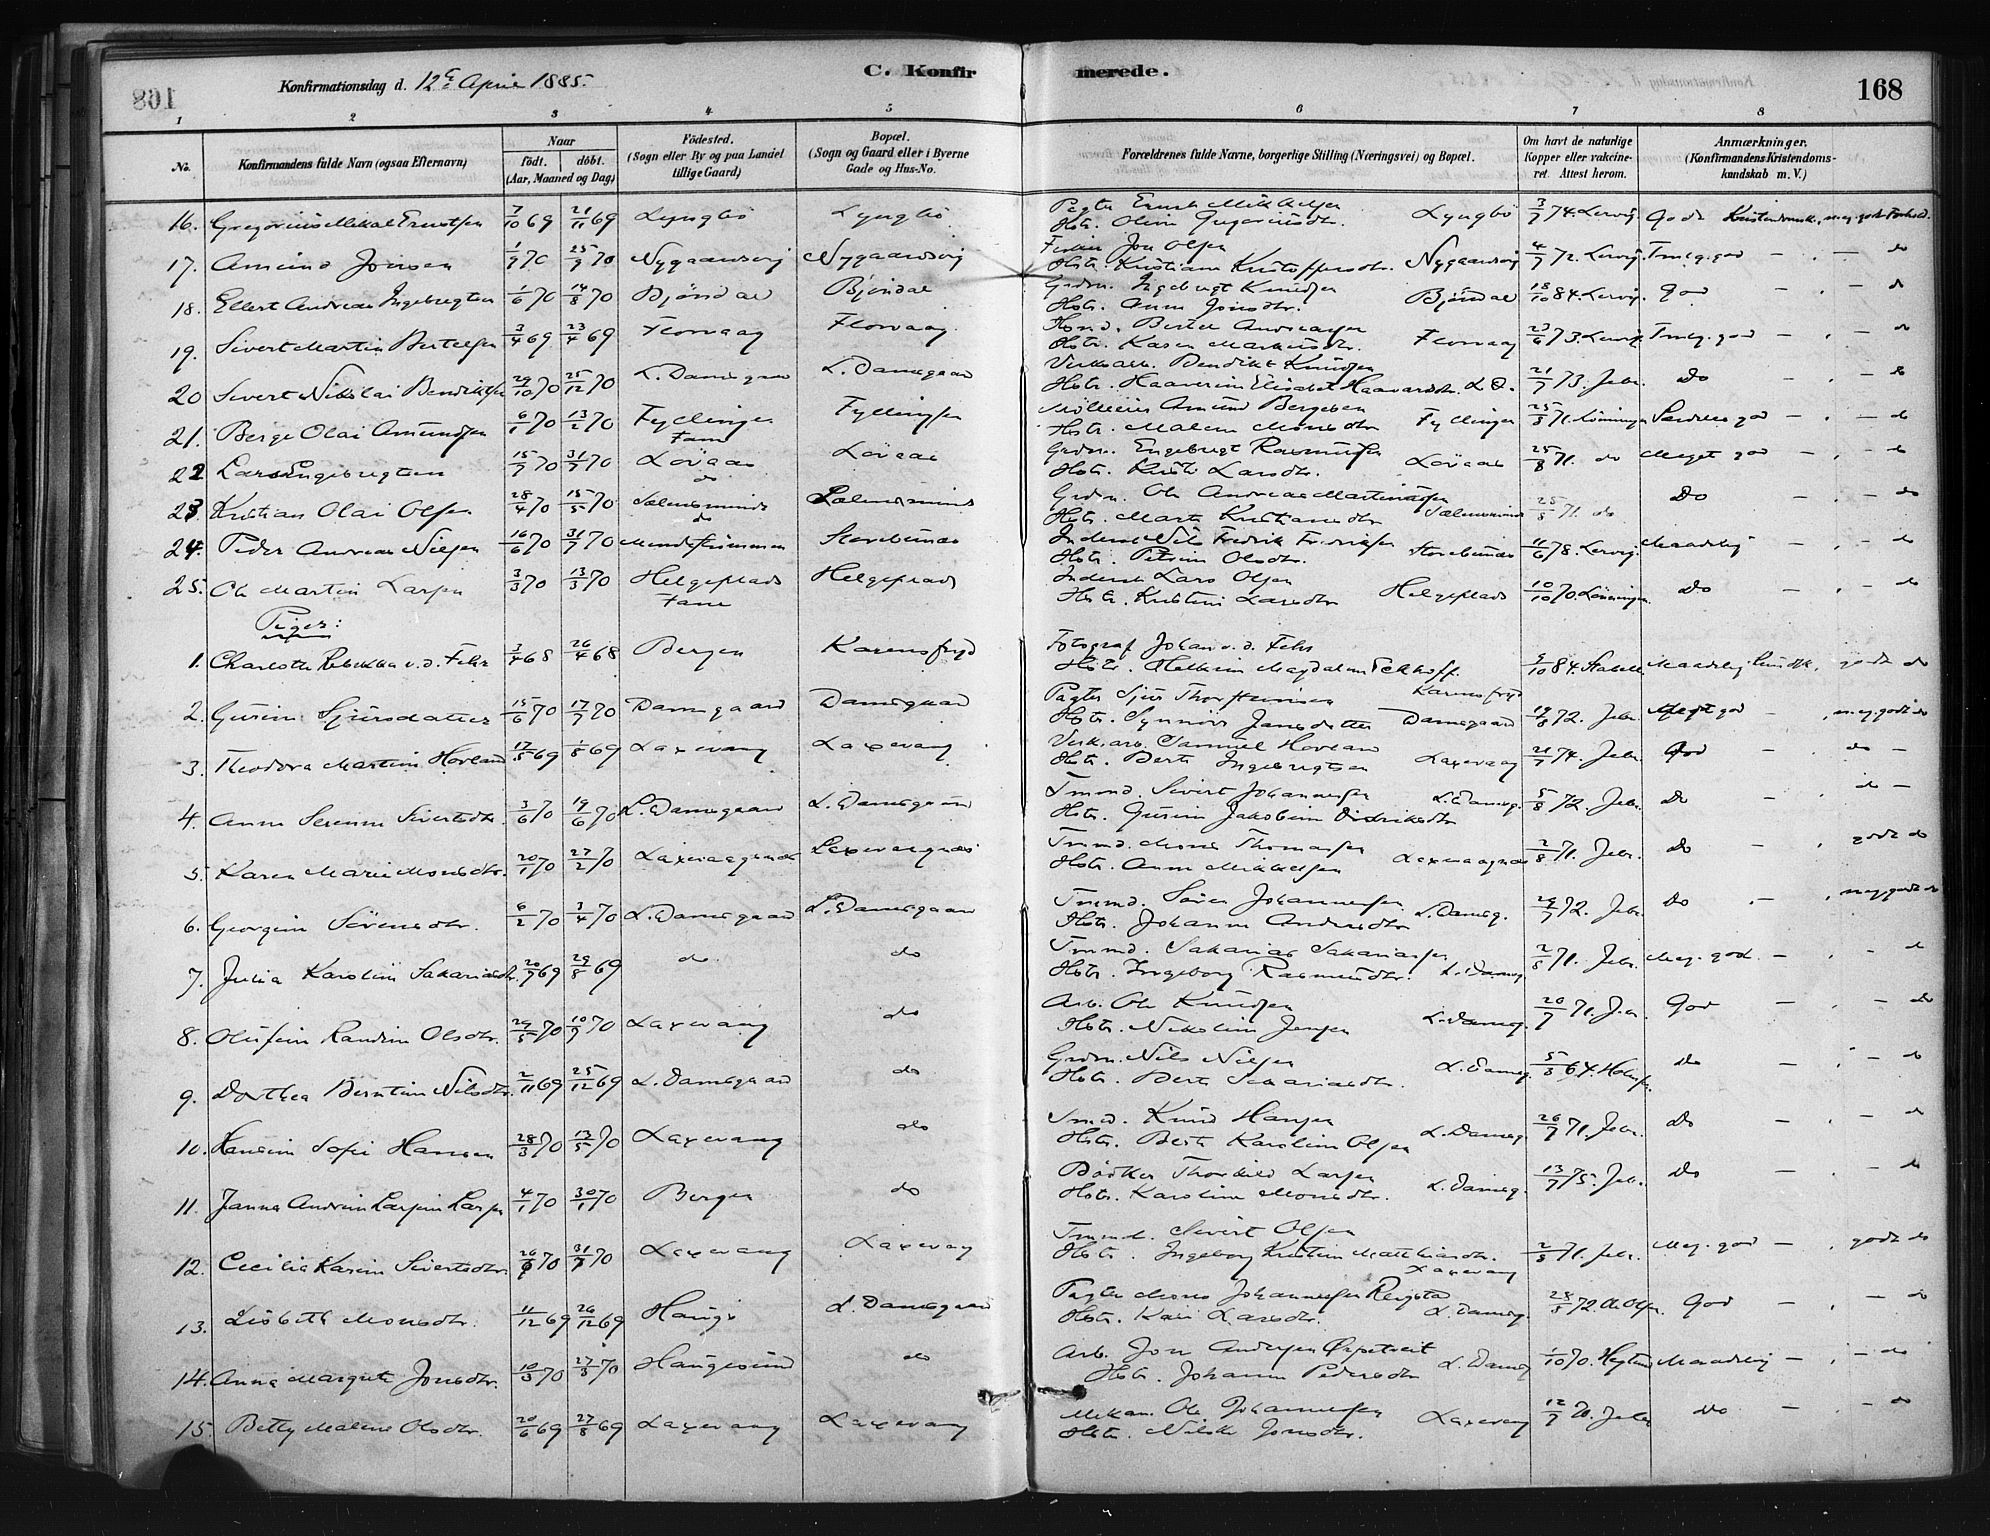 Konfirmationsdag d. 12te April 1885.
C. Konfirmerede.
168
1 2 3 4 5 6 7 8
No.
Konfirmandens fulde Navn (ogsaa Efternavn)
Naar
født. døbt.
(Aar, Maaned og Dag)
Fødested.
(Sogn eller By og paa Landet
tillige Gaard)
Bopæl.
(Sogn og Gaard eller i Byerne
Gade og Hus-No.
Forældrenes fulde Navne, borgerlige Stilling (Næringsvei) og Bopæl.
Om havt de naturlige
Kopper eller vakcine-
ret. Attest herom.
Anmærkninger.
(Konfirmandens Kristendoms-
kundskab m. V.)
16. Gregorius Mikal Ernstsen 7/10 69 21/11 69 Lyngbø Lyngbø Pagter Ernst Mikkelsen
Hstr. Oline Gregoriusdtr. Lyngbø 3/7 74. Lervig. Godt Kristendomsk., meg. godt Forhold.
17. Amund Jonsen 1/7 70 25/9 70 Nygaardsvig Nygaardsvig Jon Olsen
Hstr. Kristiane Kristoffersdtr. Nygaardsvig 4/7 72. Lervig. Tmlg. god — , — do
18. Ellert Andreas Ingebrigtsen 1/6 70 14/8 70 Bjørndal Bjørndal Grdm. Ingebrigt Knudsen
Hstr. Anne Jonsdtr. Bjørndal 18/10 84. Lervig. God — , — do
19. Sivert Martin Bertelsen 3/4 69 23/4 69 Florvaag Florvaag Bertel Andreassen
Hstr. Karen Markusdtr. Florvaag 23/6 73. Lervig Tmlg. god — , — do
20 Sivert Nikolai Bendiktsen 29/10 70 25/12 70 L. Damsgaard L. Damsgaard Verksarb. Bendikt Knudsen
Hstr. Haaverine Elisabet Haavardsdtr. L. D. 21/7 73. Jebe. Do — , — do
21. Berge Olai Amundsen 6/1 70 13/2 70 Fyllingen Fyllingen Møller Amund Bergesen
Fane
Hstr. Malene Monsdtr Fyllingen 25/8 71. Lønningen Særdeles god — , — do
22 Lars Engebrigtsen 15/7 70 31/7 70 Løvaas Løvaas Grdm. Engebrigt Rasmussen
do
Hstr. Kristi Larsdtr. Løvaas 25/8 71. do Meget god — , — do
23. Kristian Olai Olsen 28/4 70 15/5 70 Sælensminde Sælensminde Grdm. Ole Andreas Martinussen
do
Hstr. Marta Kristiansdtr Sælensminde 25/8 71. do Do — — do
24. Peder Andreas Nielsen 16/6 70 31/7 70 Storebunes Inderst Nils Fredrik Fredriksen
Hstr. Petrine Olsdtr. Storebunes 11/6 78. Lervig. Maadelig — , — do
25. Ole Martin Larsen 3/3 70 13/3 70 Helgeplads Helgeplads Inderst Lars Olsen
Fane
Hstr. Kristine Larsdtr Helgeplads 10/10 70. Lønningen. Do — , — do
Piger:
1. Charlotte Rebekka v. d. Fehr 3/4 68 26/4 68 Bergen Karensfryd Fotograf Johan v. d. Fehr
Hstr. Helene Magdalene Eckhoff. Karensfryd 9/10 84. Stabell. Maadelig Kundsk., godt do
2. Gurine Sjursdatter 15/6 70 17/7 70 Damsgaard Damsgaard Pagter Sjur Thorsteinsen
Hstr. Synnøve Jansdatter Damsgaard 19/8 72. Jebe. Meget god — , meg. godt do
3. Theodora Martine Hovland 17/5 69 1/8 69 Laxevaag Laxevaag Verk.arb. Samuel Hovland
Hstr. Berte Ingebrigtsen Laxevaag 21/7 74. Jebe. God — , do —
4. Anne Serine Sivertsdtr. 3/6 70 19/6 70 L. Damsgaard L. Damsgaard Tmmd. Sivert Johannessen
Hstr. Gurine Jakobine Didriksdtr L. Damsg. 5/8 72. Jebe. Do — , do —
5. Karen Marie Monsdtr. 20/1 70 27/2 70 Laxevaagnæs Laxevaagnæs Tmmd. Mons Thomassen
Hstr. Anne Mikkelsen Laxevaagnæs 2/8 71. Jebe. Do — , godt do
6. Georgine Sørensdtr. 6/2 70 3/4 70 L. Damsgaard L. Damsgaard Tmmd. Søren Johannessen
Hstr. Johanne Andersdtr L. Damsg. 29/7 72. Jebe. Do — , meg. godt do
7. Julia Karoline Sakariasdtr. 20/7 69 29/8 69 do do Tmmd. Sakarias Sakariassen
Hstr. Ingeborg Rasmusdtr. L. Damsg 2/8 71. Jebe. Meg. god. — , — do
8. Olufine Randine Olsdtr. 29/5 70 10/7 70 Laxevaag do Arb. Ole Knudsen
Hstr. Nikoline Jensen L. Damsg. 20/7 71. Jebe. God — , — do
9. Dorthea Berntine Nilsdtr. 2/11 69 25/12 69 L. Damsgaard do Grdm. Nils Nilsen
Hstr. Berte Sakariasdtr. L. Damsg. Do — , — do
10. Hansine Sofie Hansen 28/3 70 13/5 70 Laxevaag do Smed. Knud Hansen
Hstr. Berte Karoline Olsen L. Damsg. 26/7 71. Jebe. Do — , — do
11. Janna Andrine Larsine Larsen 4/1 70 30/1 70 Bergen do Bødker Thorkild Larsen
Hstr. Karoline Monsdtr. L. Damsg. 13/7 75. Jebe. Do — , — do
12. Cecilie Karine Sivertsdtr. 31/7 70 Laxevaag Laxevaag Tmmd. Sivert Olsen
Hstr. Ingeborg Kristine Matthiasdtr. Laxevaag 2/8 71. Jebe. Meg. god — , godt do
13. Lisbeth Monsdtr. 11/12 69 26/12 69 Haugs L. Damsgaard Pagter Mons Johannessen
Hstr. Kari Larsdtr. L. Damsg. 28/5 72. O. Olsen. God — , — do
14. Anna Margrete Jonsdtr. 10/3 70 27/3 70 Haugesund do Arb. Jon Andersen
Hstr. Johanne Pedersdtr L. Damsg Maadelig — , — do
15. Betty Malene Olsdtr. 20/6 69 27/8 69 Laxevaag Laxevaag Mekan. Ole Johannessen
Hstr. Nilsk Jonsdtr. Laxevaag 12/7 70. Jebe Do — , — do